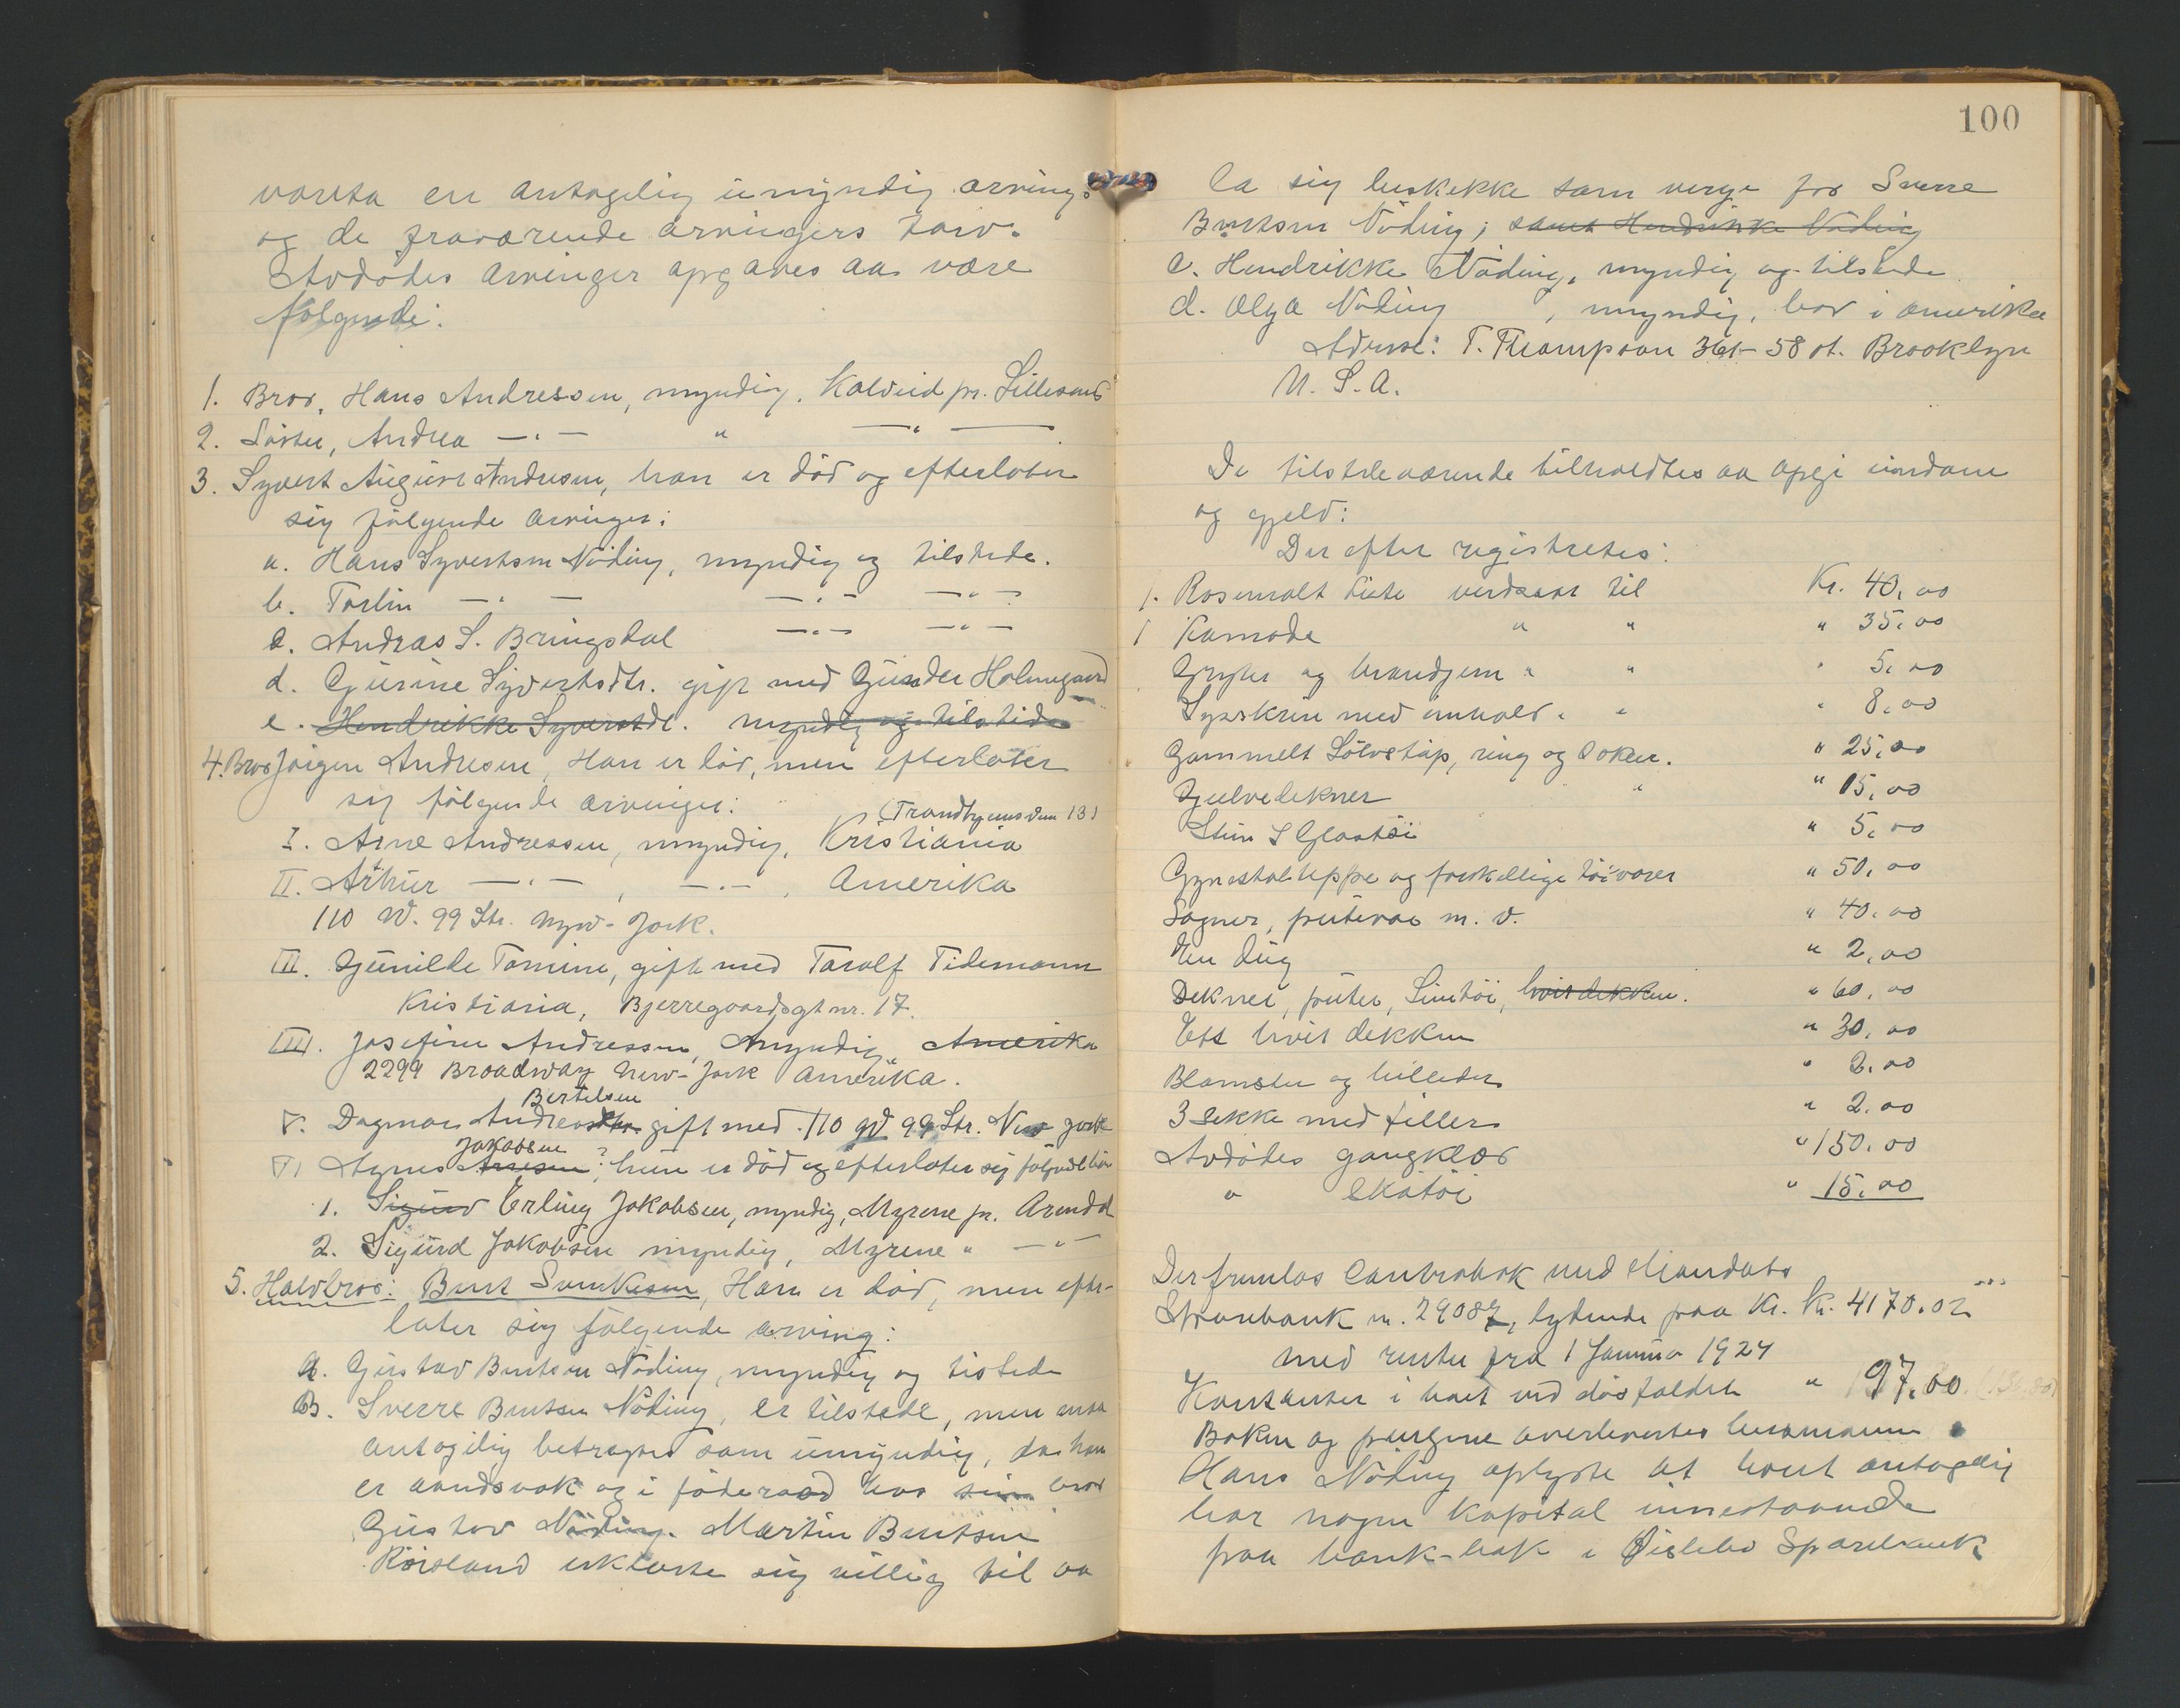 vareta en antagelig umyndig arving.
og de fraværende arvingers tarv.
Avdødes arvinger opgaves aa være
følgende:
1. Bror, Hans Andressen, myndig, Kalveid pr. Lillesand
2. Søster, Andrea —"— " —"—
3. Syvert August Andresen, han er død og efterlater
sig følgende arvinger:
a. Hans Syvertsen Nöding, myndig og tilstede.
b. Torlin —"— —"— —"—
c. Andras S. Bringsdal —"— —"—
d. Gurine Syvertsdtr. gift med Gunder Holmegaard
e. Hendrikke Syvertsdt. myndig og tilstede
4. Bror Jörgen Andresen, Han er død, men efterlater
sig følgende arvinger:
(Trondhjemsvn 13)
I. Arne Andressen, myndig, Kristiania
II. Arthur —"—, —"—, Amerika
110 W. 99 Str. New-York.
III. Gunilde Tomine, gift med Taralf Tidemann
Kristiania, Bjerregaardsgt nr. 17.
IIII. Josefine Andressen, myndig, Amerika
2299 Broadway New-York Amerika.
Bertelsen
V. Dagmar Andreasdtr. gift med 110 W 99 Str. New York
Jakobsen
VI Agnes; hun er død og efterlater sig følgende
1. Sigurd Erling Jakobsen, myndig, Myrene pr. Arendal
2. Sigurd Jakobsen myndig, Myrene " —"—
5. Halvbror: Bent Sven­kesen, Han er død, men efter-
later sig følgende arving:
a. Gustav Bentsen Nöding, myndig og tilstede
B. Sverre Bentsen Nöding, er tilstede, men maa
antagelig betragtes som umyndig, da han
er aandsvak og i föderaad hos sin bror
Gustav Nöding. Martin Bentsen
Röisland erklærte sig villig til aa
100
la sig beskikke som verge for Sverre
Bentsen Nöding; samt Hendrikke Nöding
c. Hendrikke Nöding, myndig og tilstede
d. Olga Nöding, myndig, bor i Amerika
Adresse: T. Thompson 361 - 58 st. Brooklyn
U. S. A.
De tilstedeværende tilholdtes aa opgi eiendom
og gjeld:
Der efter registrertes:
1. Rosemalt kiste verdsat til Kr. 40,00
1 Komode " " " 35,00
Gryter og brandjern " " " 5,00
Syskrin med inhold " " " 8,00
Gammelt Sölvstöp, ring og " 25,00
Gulvdekner " " 15,00
Sten & Glastöi " 5,00
teppe og forskellige töivarer " 50,00
Lagner, putevar m. v. " 40,00
En dug " 2,00
Dekner, puter, Linntöi, hvit dekken. " 60,00
Ett hvit dekken " 30,00
Blomster og billeder " 2,00
3 sekke med filler " 2.00
Avdödes gangklær " 150.00
" skötöi " 15,00
Der fremlas Contrabok med Mandals
Sparebank nr. 29087, lydende paa Kr. Kr. 4170.02
med renter fra 1 Januar 1924
Kontanter i boet ved dösfaldet " 97,00
Boken og pengene overlevertes lensmannen
Hans Nöding oplyste at boet antagelig
har nogen kapital innestaaende
paa bank-bok i Øislebø Sparebank